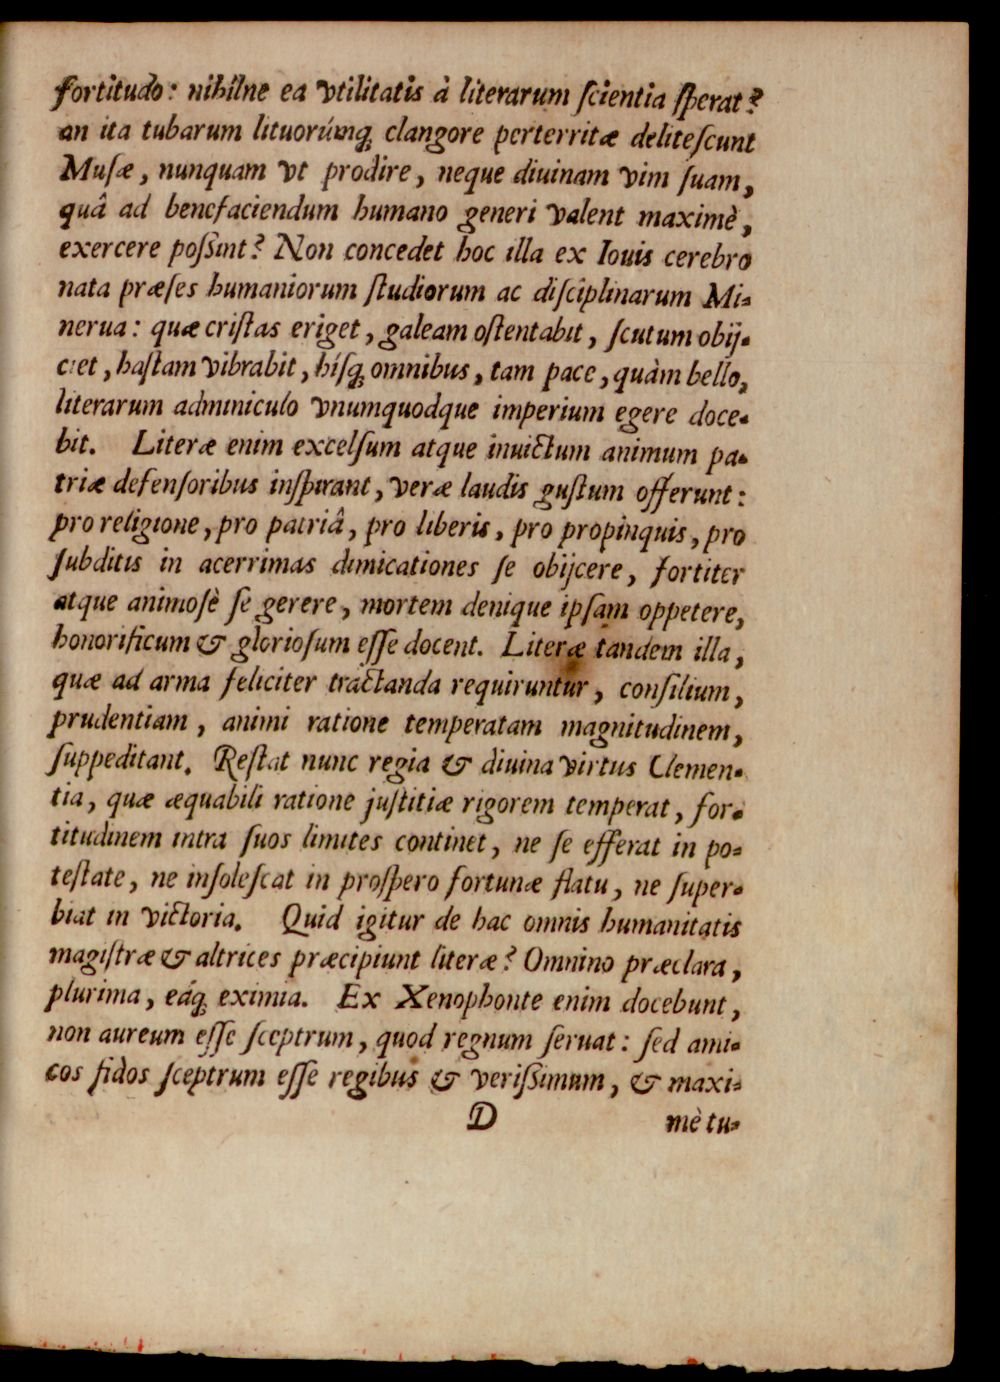 fortitudo: nihilne ea vtilitatis à literarum ſcientia ſperat?
an ita tubarum lituorúmq́; clangore perterritæ deliteſcunt
Muſæ, nunquam vt prodire, neque diuinam vim ſuam,
quâ ad benefaciendum humano generi valent maximè,
exercere poßint? Non concedet hoc illa ex Iouis cerebro
nata præſes humaniorum ſtudiorum ac diſciplinarum Mi-
nerua: quæ criſtas eriget, galeam oſtentabit, ſcutum obij-
ciet, haſtam vibrabit, hiſq́; omnibus, tam pace, quàm bello,
literarum adminiculo vnumquodque imperium egere doce-
bit. Literæ enim excelſum atque inuictum animum pa-
triæ defenſoribus inſpirant, veræ laudis guſtum offerunt:
pro religione, pro patriâ, pro liberis, pro propinquis, pro
ſubditis in acerrimas dimicationes ſe obijcere, fortiter
atque animosè ſe gerere, mortem denique ipſam oppetere,
honorificum & glorioſum eſſe docent. Literæ tandem illa,
quæ ad arma feliciter tractanda requiruntur, conſilium,
prudentiam, animi ratione temperatam magnitudinem,
ſuppeditant. Reſtat nunc regia & diuina virtus Clemen-
tia, quæ æquabili ratione juſtitiæ rigorem temperat, for-
titudinem intra ſuos limites continet, ne ſe efferat in po-
teſtate, ne inſoleſcat in proſpero fortunæ flatu, ne ſuper-
biat in victoria. Quid igitur de hac omnis humanitatis
magiſtræ & altrices præcipiunt literæ? Omnino præclara,
plurima, eáq́; eximia. Ex Xenophonte enim docebunt,
non aureum eſſe ſceptrum, quod regnum ſeruat: ſed ami-
cos fidos ſceptrum eſſe regibus & verißimum, & maxi-
D mè tu-